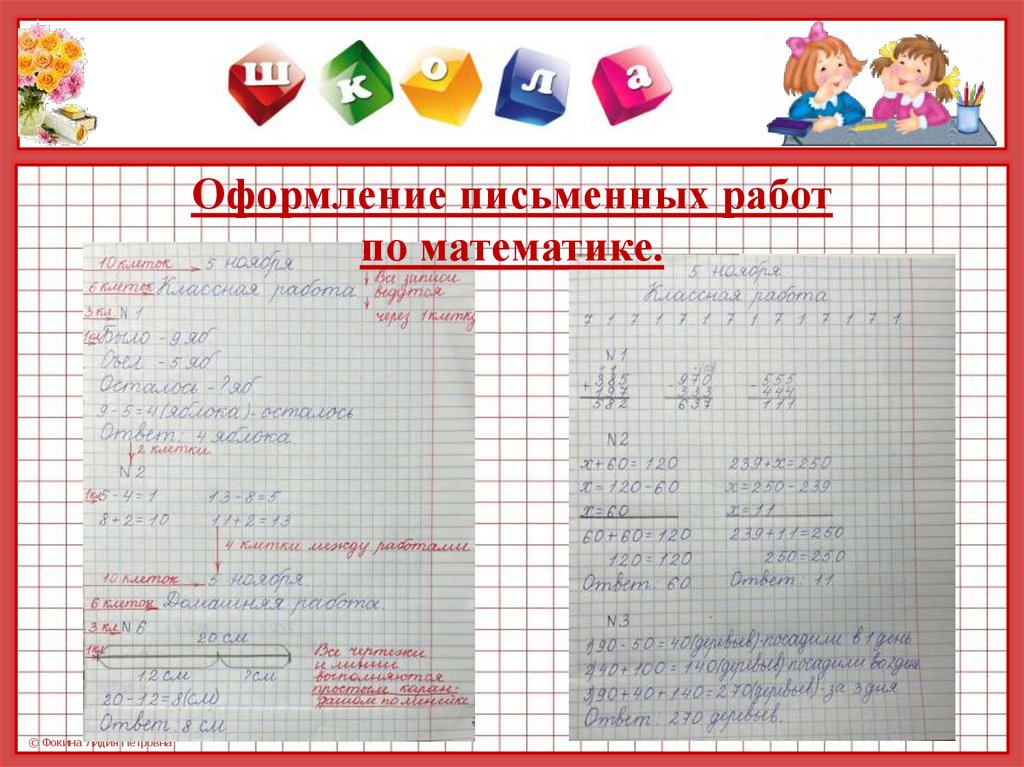 школа
Оформление письменных работ
по математике.
10 клеток 5 ноября
6 клеток Классная работа
Все записи
ведутся
через 1 клетку
3 кл N 1
1 кл Было - 9 яб.
Съел - 5 яб
Осталось - ? яб
9 - 5 = 4 (яблока) - осталось
Ответ: 4 яблока
2 клетки
N 2
1 кл 5 - 4 = 1 13 - 8 = 5
8 + 2 = 10 11 + 2 = 13
4 клетки между работами
10 клеток 5 ноября
6 клеток Домашняя работа.
3 кл N 6
20 см
1 кл
12 см ? см
20 - 12 = 8 (см)
Ответ: 8 см
Все чертежи
и линии
выполняются
простым каран-
дашом по линейке
5 ноября
Классная работа
7 1 7 1 7 1 7 1 7 1 7 1 7 1
N 1
+ 385 - 970 - 555
197 333 444
582 637 111
N 2
x + 60 = 120 239 + x = 250
x = 120 - 60 x = 250 - 239
x = 60 x = 11
60 + 60 = 120 239 + 11 = 250
120 = 120 250 = 250
Ответ: 60 Ответ: 11
N 3
1)90 - 50 = 40 (деревьев)-посадили в 1 день
2)40 + 100 = 140 (деревьев) посадили во 2 день
3)90 + 40 + 140 = 270 (деревьев) - за 3 дня
Ответ: 270 деревьев.
© Фокина Лидия Петровна